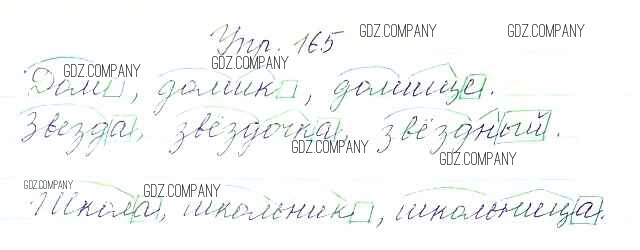 Упр. 165 GDZ.COMPANY GDZ.COMPANY
GDZ.COMPANY GDZ.COMPANY
Дом, домик, домище.
Звезда, звёздочка, звёздный.
GDZ.COMPANY GDZ.COMPANY
GDZ.COMPANY GDZ.COMPANY
Школа, школьник, школьница.